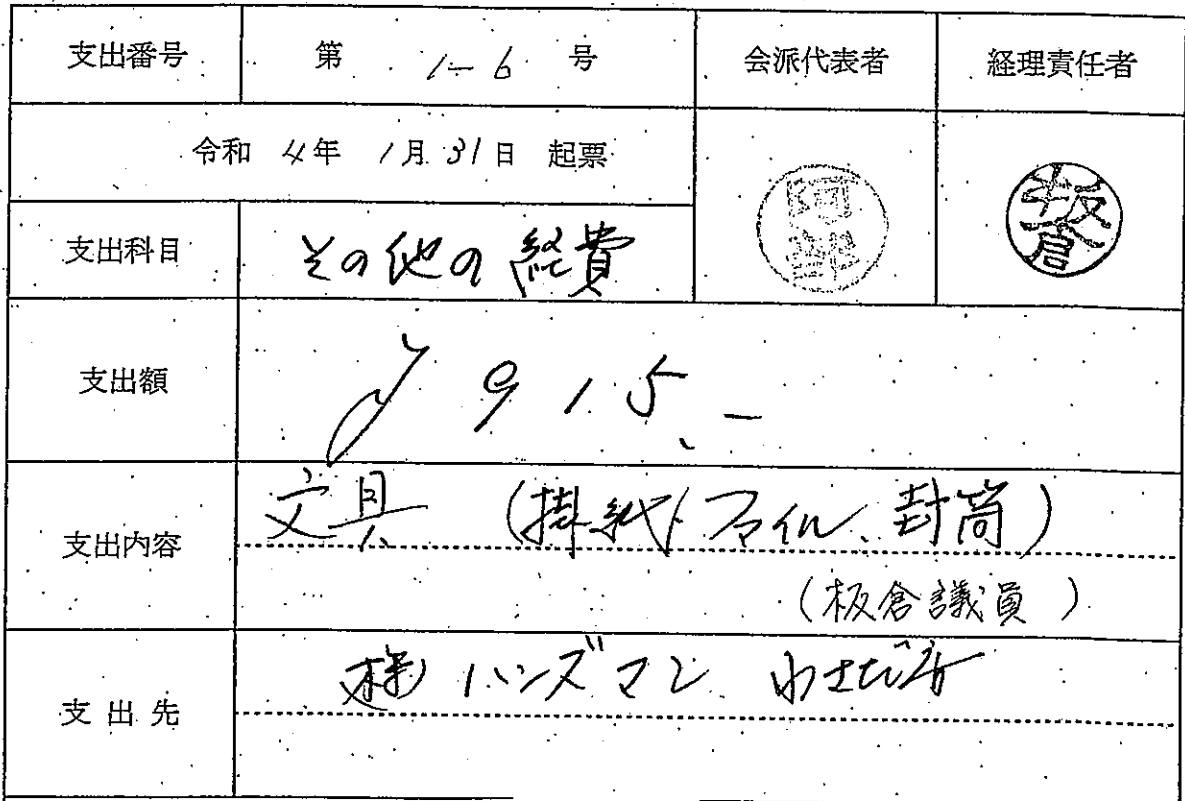 支出番号 第 1-6 号 会派代表者 経理責任者
令和 4年 1月 31日 起票 阿部 板倉
支出科目 その他の経費
支出額 ¥915.-
支出内容 文具 (掛紙、ファイル、封筒)
(板倉議員)
支出先 (株)ハンズマン